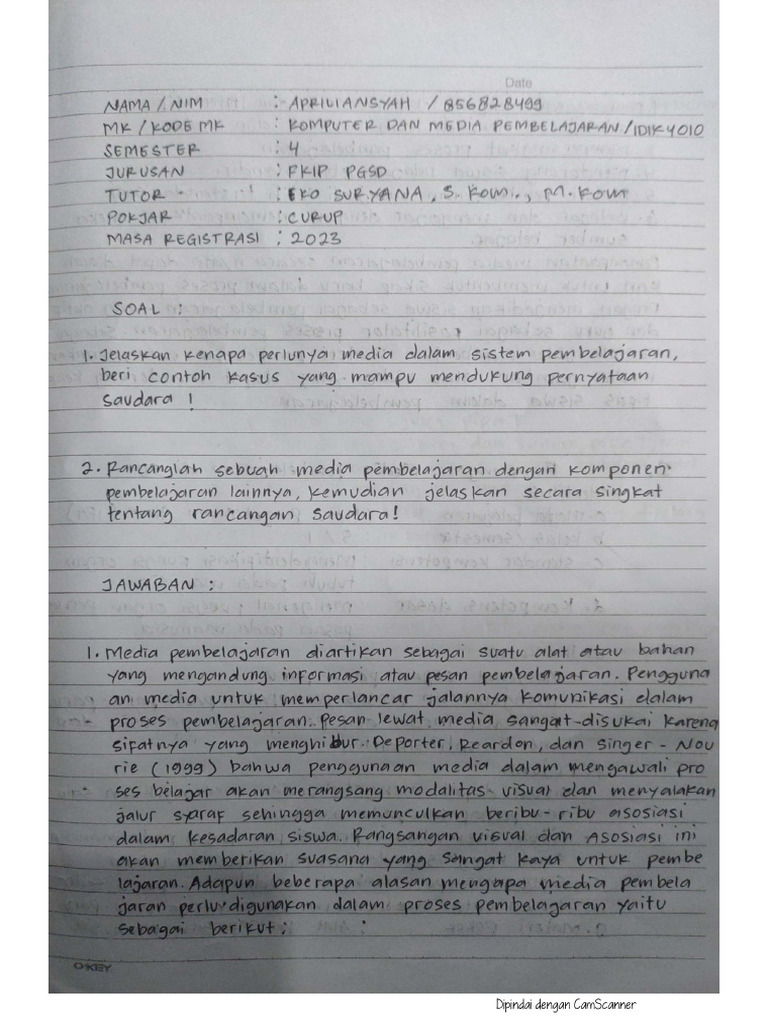 Date
NAMA / NIM : APRILIANSYAH / 856828499
MK / KODE MK : KOMPUTER DAN MEDIA PEMBELAJARAN / IDIK4010
SEMESTER : 4
JURUSAN : FKIP PGSD
TUTOR : EKO SURYANA, S. Kom., M. KOM
POKJAR : CURUP
MASA REGISTRASI : 2023
SOAL :
1. Jelaskan kenapa perlunya media dalam sistem pembelajaran,
beri contoh kasus yang mampu mendukung pernyataan
Saudara !
2. Rancanglah sebuah media pembelajaran dengan komponen
pembelajaran lainnya, kemudian jelaskan secara singkat
tentang rancangan Saudara!
JAWABAN :
1. Media pembelajaran diartikan sebagai suatu alat atau bahan
yang mengandung informasi atau pesan pembelajaran. Pengguna
an media untuk memperlancar jalannya komunikasi dalam
proses pembelajaran. Pesan lewat media sangat disukai karena
sifatnya yang menghibur. Deporter, Reardon, dan Singer - Nou
rie (1999) bahwa penggunaan media dalam mengawali pro
ses belajar akan merangsang modalitas visual dan menyalakan
jalur syaraf sehingga memunculkan beribu-ribu asosiasi
dalam kesadaran siswa. Rangsangan visual dan Asosiasi ini
akan memberikan suasana yang sangat kaya untuk pembe
lajaran. Adapun beberapa alasan mengapa media pembela
jaran perlu digunakan dalam proses pembelajaran yaitu
sebagai berikut :
O-KEY
Dipindai dengan CamScanner